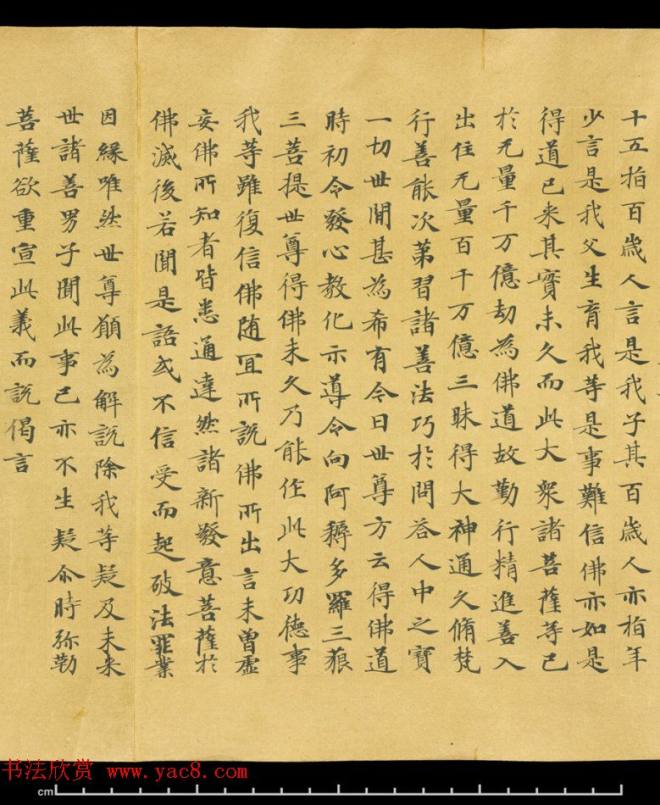 十五指百歲人言是我子其百歲人亦指年
少言是我父生育我等是事難信佛亦如是
得道已来其實未久而此大衆諸菩薩等已
於无量千万億劫為佛道故勤行精進善入
出住无量百千万億三昧得大神通久脩梵
行善能次第習諸善法巧於問荅人中之寶
一切世間甚為希有今日世尊方云得佛道
時初令發心教化示導令向阿耨多羅三藐
三菩提世尊得佛未久乃能作此大功德事
我等雖復信佛随冝所說佛所出言未曾虛
妄佛所知者皆悉通達然諸新發意菩薩於
佛滅後若聞是語或不信受而起破法罪業
因緣唯然世尊願為解說除我等疑及未来
世諸善男子聞此事已亦不生疑尒時弥勒
菩薩欲重宣此義而說偈言
书法欣赏 www.yac8.com
cm